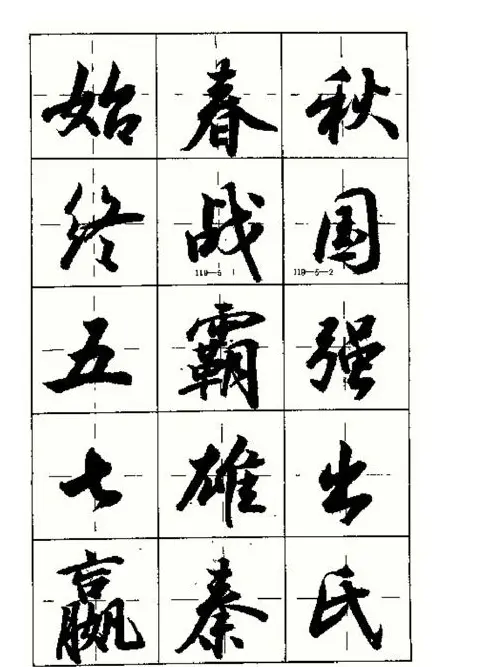 始春秋
终战国
119—5 119—5—2
五霸强
七雄出
嬴秦氏